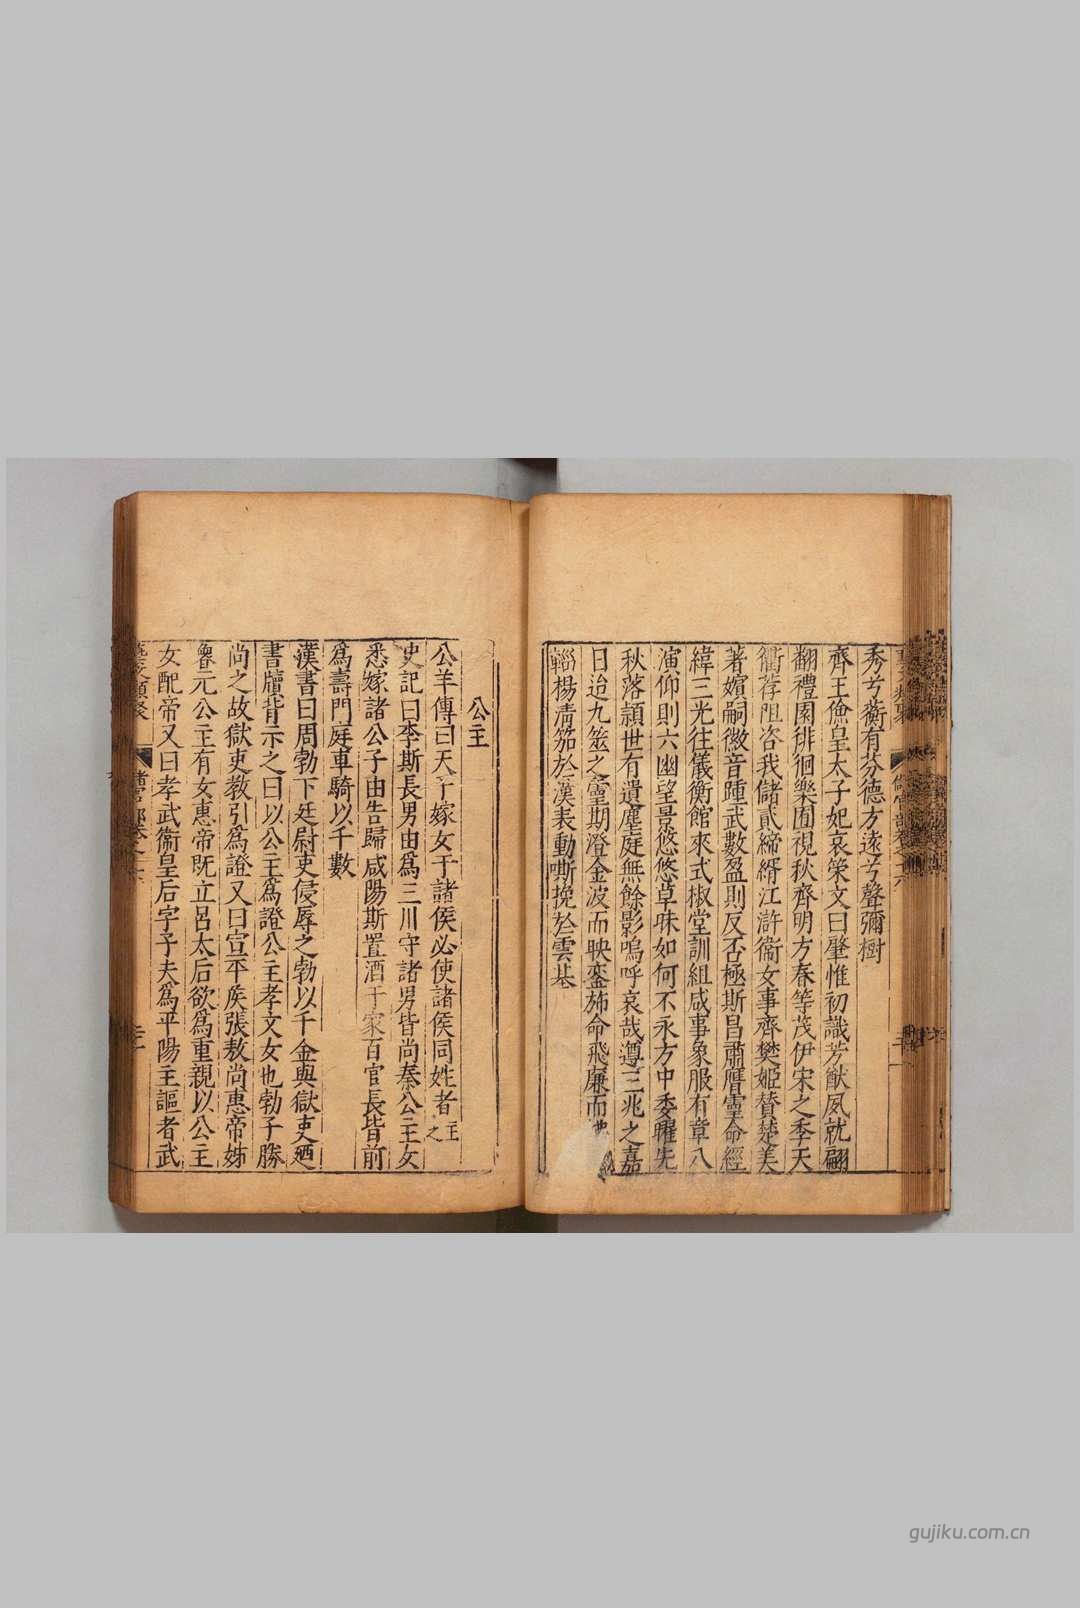 秀兮蘅有芬德方遠兮聲彌樹
齊王儉皇太子妃哀策文曰肇惟初識芳猷夙就翩
翻禮園徘徊樂囿視秋齊明方春等茂伊宋之季天
衢荐阻咨我儲貳締緍江滸衞女事齊樊姬賛楚美
著嬪嗣徽音踵武數盈則反否極斯昌肅膺霊命經
緯三光往儀衡館來式椒堂訓組咸事象服有章八
演仰則六幽望景悠悠卓昧如何不永方中委曜先
秋落頴世有遺塵庭無餘影嗚呼哀哉遵三兆之嘉
日迨九筮之霊期澄金波而映鑾斾命飛廉而
輜楊清笳於漢表動嘶挽於雲基
公主
公羊傳曰天子嫁女于諸侯必使諸侯同姓者主之
史記曰李斯長男由爲三川守諸男皆尚秦公主女
悉嫁諸公子由告歸咸陽斯置酒于家百官長皆前
爲壽門庭車騎以千數
漢書曰周勃下廷尉吏侵辱之勃以千金與獄吏廼
書牘背示之曰以公主爲證公主孝文女也勃子勝
尚之故獄吏敎引爲證又曰宣平侯張敖尚惠帝姊
魯元公主有女惠帝旣立呂太后欲爲重親以公主
女配帝又曰孝武衞皇后字子夫爲平陽主謳者武
藝文類聚
諸宮部卷之十六
gujiku.com.cn